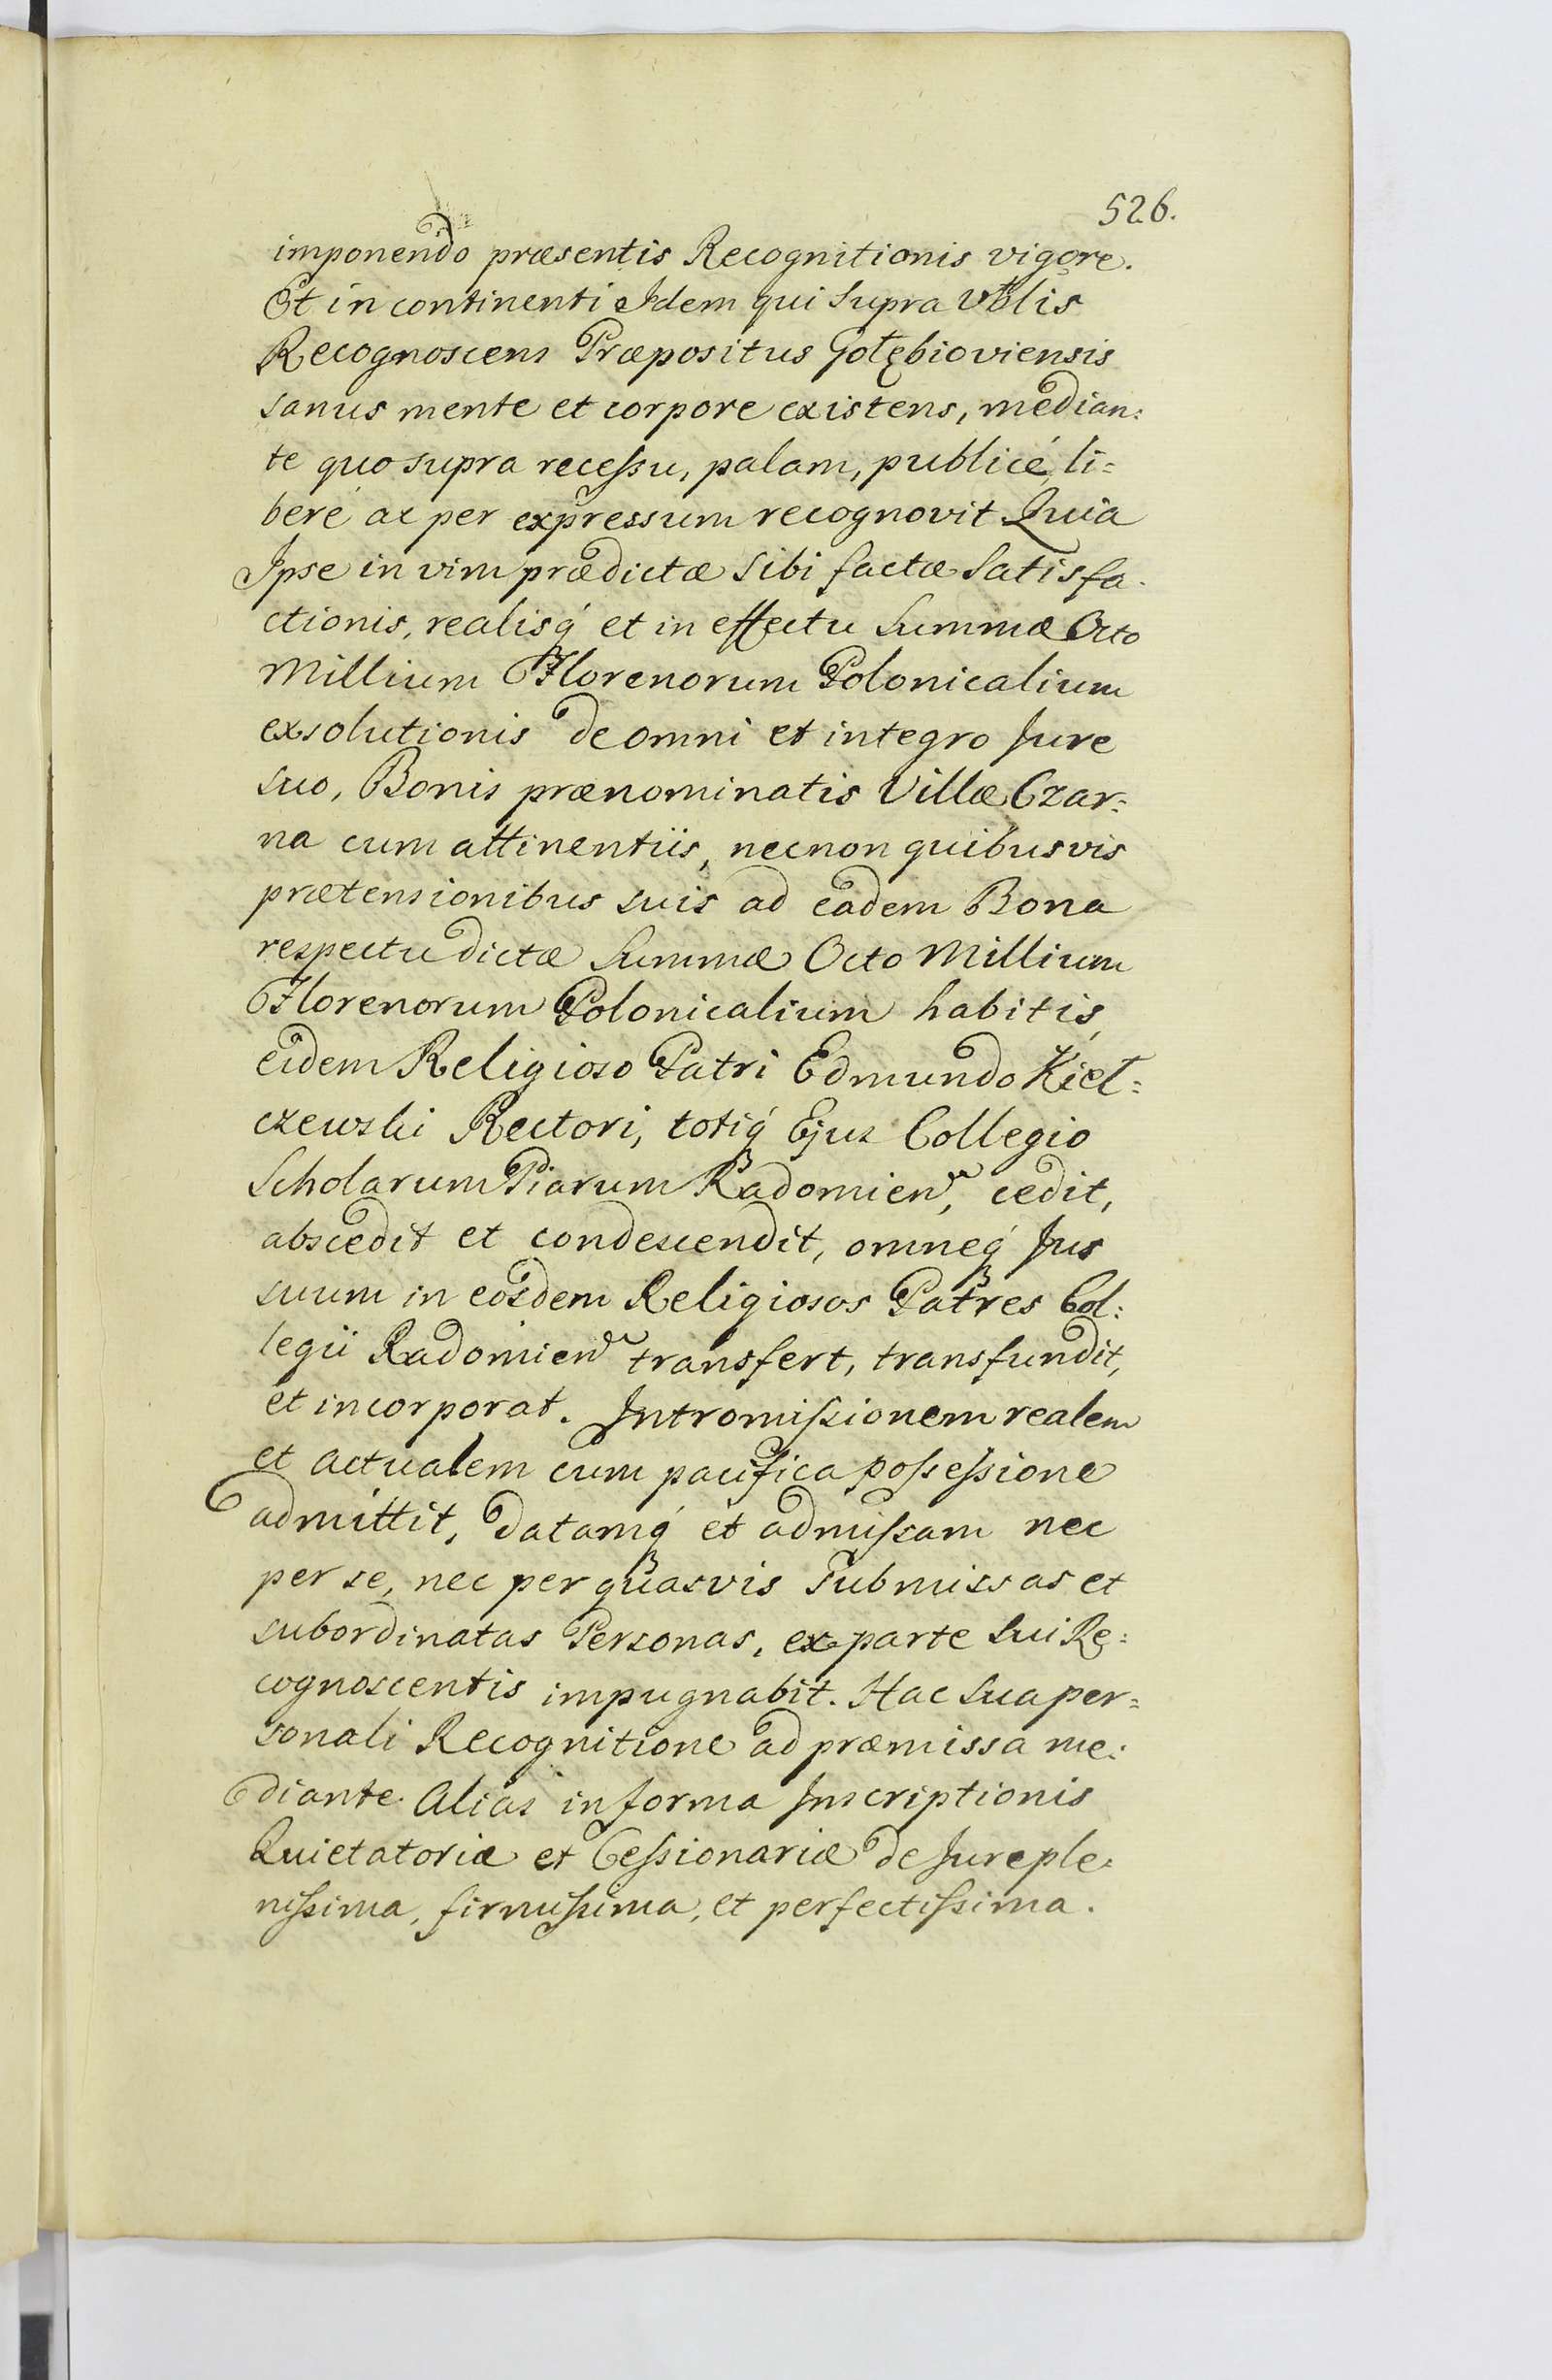 526.
imponendo præsentis Recognitionis vigore.
Et in continenti Idem qui supra Vblis
Recognoscens Præpositus Gołębioviensis
sanus mente et corpore existens, median:
te quo supra recessu, palam, publicé, li=
beré ac per expressum recognovit Quia
Ipse in vim prædictæ sibi factæ Satisfa-
ctionis, realisq́ et in effectu Summæ Octo
Millium Florenorum Polonicalium
exsolutionis de omni et integro Jure
suo, Bonis prænominatis Villæ Czar=
na cum attinentiis, necnon quibusvis
prætensionibus suis ad eadem Bona
respectu dictæ Summæ Octo Millium
Florenorum Polonicalium habitis,
eidem Religioso Patri Edmundo Kieł=
czewski Rectori, totiq́ Ejus Collegio
Scholarum Piarum Radomien, cedit,
abscedit et condescendit, omneq́ Jus
suum in eosdem Religiosos Patres Col:
legii Radomien transfert, transfundit,
et incorporat. Intromissionem realem
et actualem cum pacifica possessione
admittit, datamq́ et admissam nec
per se, nec per quasvis submissas et
subordinatas Personas, ex parte sui Re=
cognoscentis impugnabit. Hac sua per=
sonali Recognitione ad præmissa me:
diante. Alias in forma Inscriptionis
Quietatoriæ et Cessionariæ de Jure ple:
nissima, firmissima, et perfectissima.